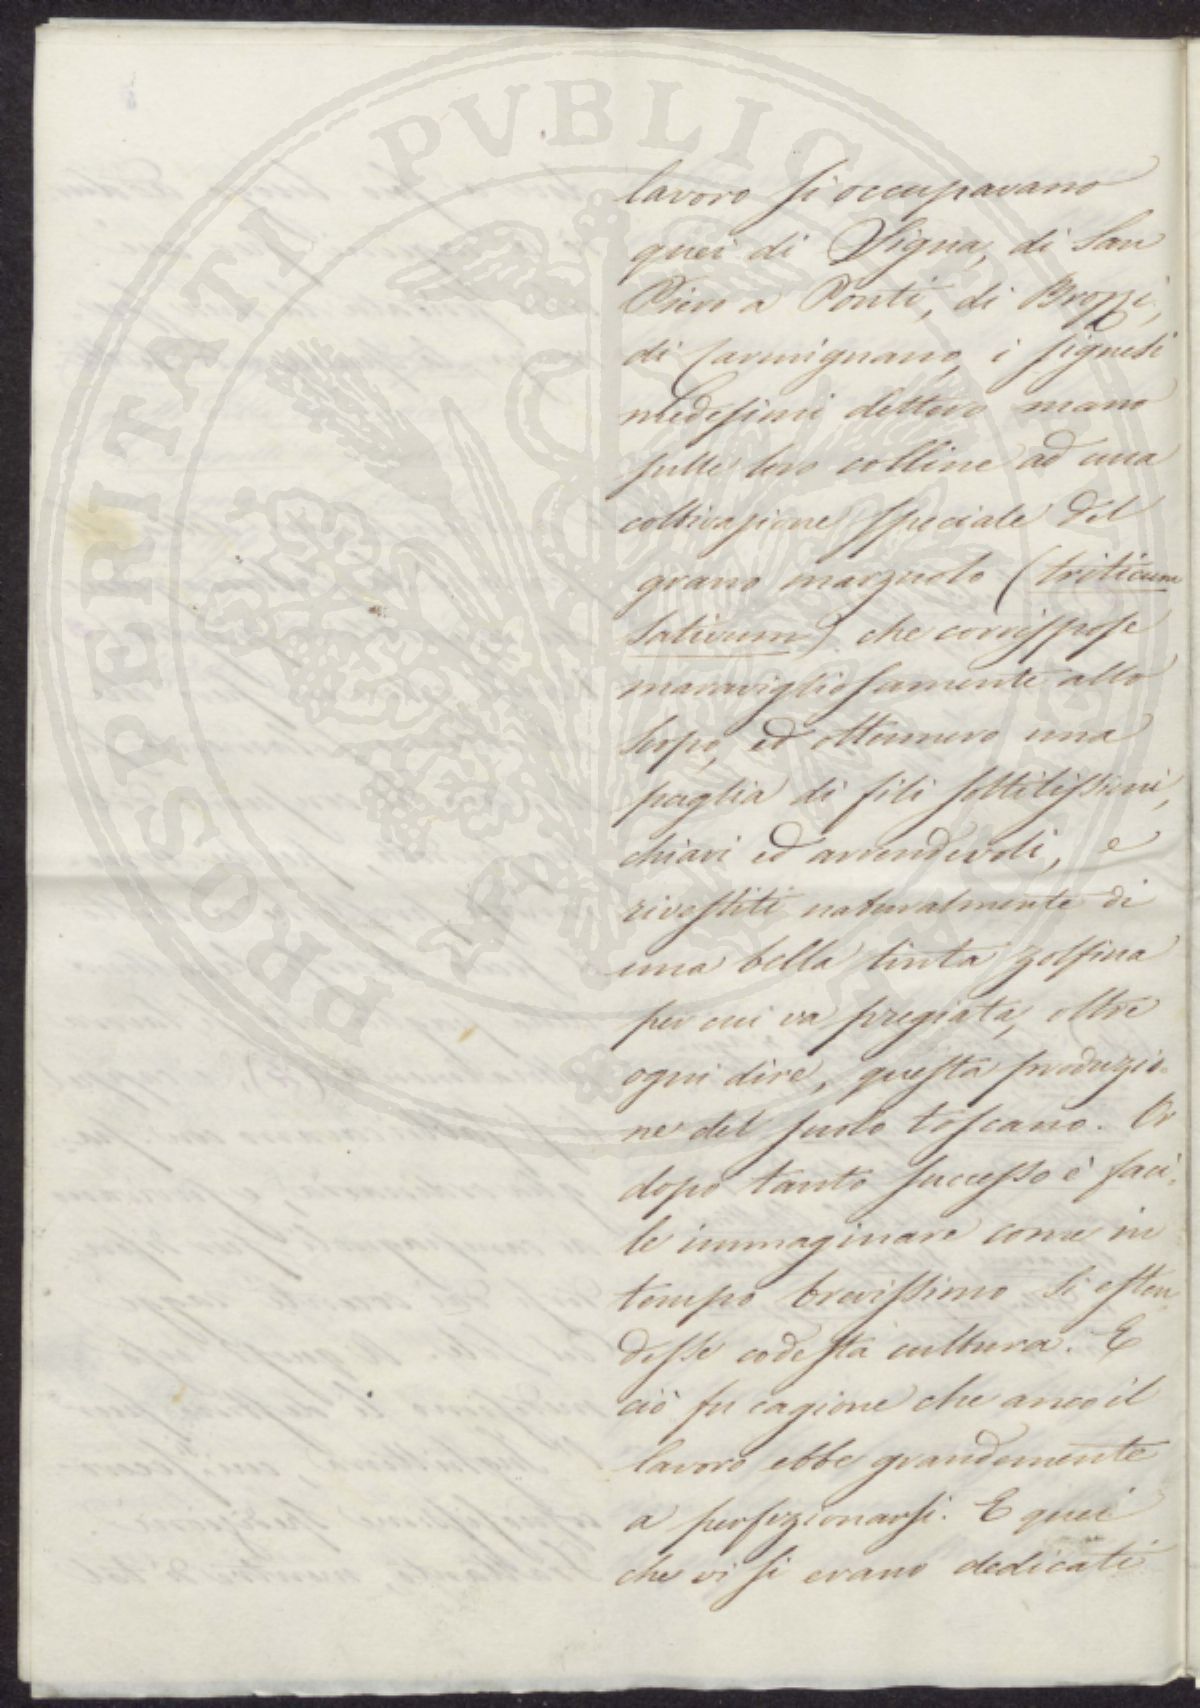 PROSPERITATI PVBLICAE
lavoro si occupavano
quei di Signa, di San
Piero a Ponti, di Brozzi,
di Carmignano, i signesi
medesimi dettero mano
sulle loro colline ad una
coltivazione speciale del
grano marzuolo (triticum
sativum) che corrispose
maravigliosamente allo
scopo, ed ottennero una
paglia di fili sottilissimi,
chiari ed arrendevoli, e
rivestiti naturalmente di
una bella tinta zolfina
per cui va pregiata, oltre
ogni dire, questa produzio-
ne del suolo toscano. Or
dopo tanto successo è faci-
le immaginare come in
tempo brevissimo si esten-
desse codesta cultura. E
ciò fu cagione che anco il
lavoro ebbe grandemente
a perfezionarsi. E quei
che vi si erano dedicati